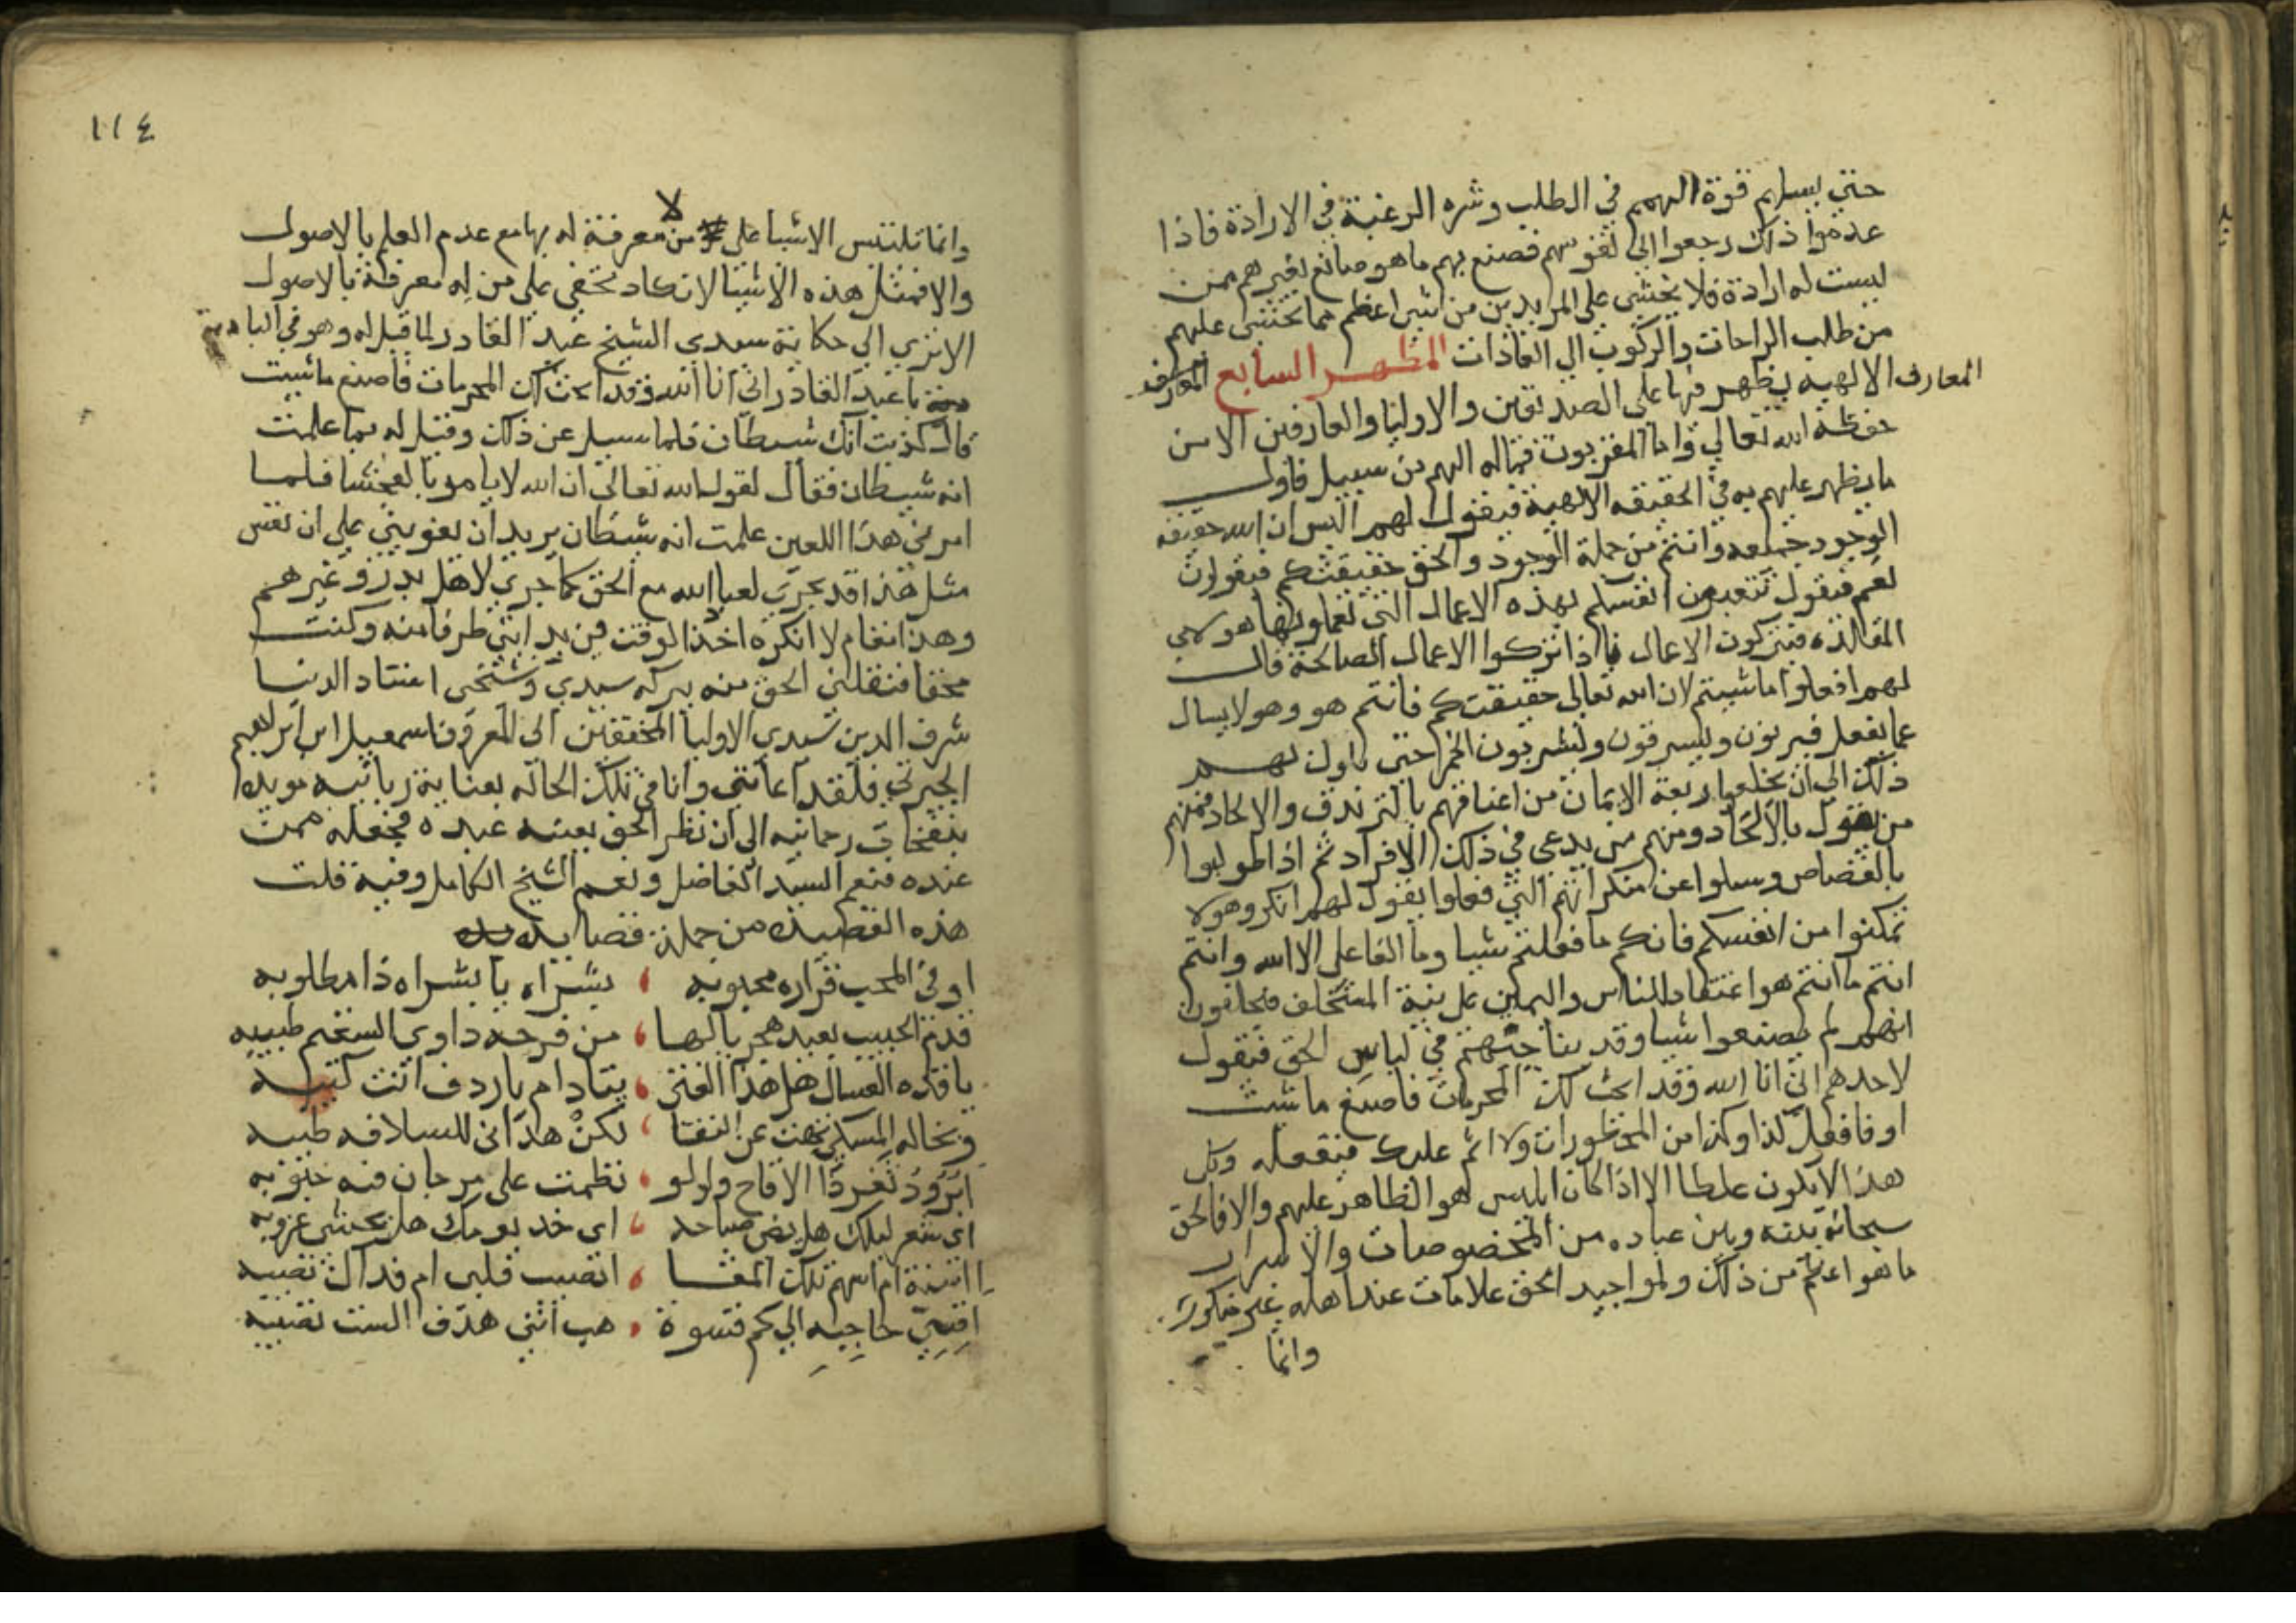 حتي يسلبهم قوة الهمم في الطلب وشره الرغبة في الارادة فاذا
عدموا ذلك رجعوا الي نفوسهم فصنع بهم ما هو صانع لغيرهم ممن
ليست له ارادة فلا يخشي على المريدين من شي اعظم مما يخشي عليهم
من طلب الراحات والركون الي العادات المظهر السابع المعارف
المعارف الالهيه يظهر فيها على الصديقين والاوليا والعارفين الا من
حفظه الله تعالي واما المقربون فماله اليهم من سبيل فاول
ما يظهر عليهم به في الحقيقه الالهية فيقول لهم اليس ان الله حقيقة
الوجود جميعه وانتم من جملة الوجود والحق حقيقتكم فيقولون
نعم فيقول تتعبون انفسكم بهذه الاعمال التي تعملونها هولاي
المقلده فيتركون الاعمال فاذا تركوا الاعمال الصالحة قال
لهم افعلوا ما شيتم لان الله تعالى حقيقتكم فانتم هو وهو لا يسال
عما يفعل فيزنون ويسرقون ويشربون الخمر حتى ياول لهم
ذلك الي ان يخلعوا ربعة الايمان من اعناقهم بالتزندق والالحاد فمنهم
من يقول بالاتحاد ومنهم من يدعي في ذلك الافراد ثم اذا طولبوا
بالقصاص وسيلوا عن منكراتهم التي فعلوا يقول لهم انكروا ولا
تمكنوا من انفسكم فانكم ما فعلتم شيا وما الفاعل الا الله وانتم
انتم ما انتم هو اعتقاد الناس واليمين على نية المستحلف فيحلفون
انهم لم يصنعوا شيا وقد يناجيهم في لباس الحق فيقول
لاحدهم اني انا الله وقد ابحت لك المحرمات فاصنع ما شيت
او فافعل كذا وكذا من المحظورات ولا اثم عليك فيفعله وكل
هذا لا يكون غلطا الا اذا كان ابليس هو الظاهر عليهم والا فالحق
سبحانه بينه وبين عباده من الخصوصات والاسرار
ما هو اعظم من ذلك ولمواجيد الحق علامات عند اهله غير منكورة
وانما
١١٤
لا
وانما تلتبس الاشيا على من معرفة له بها مع عدم العلم بالاصول
والا فمثل هذه الاشيا لا تكاد تخفي على من له معرفة بالاصول
الا تري الي حكاية سيدي الشيخ عبد القادر لما قيل له وهو في البادية
يا عبد القادر اني انا الله وقد ابحت لك المحرمات فاصنع ما شيت
قال كذبت انك شيطان فلما سيل عن ذلك وقيل له بما علمت
انه شيطان فقال لقول الله تعالي ان الله لا يامر بالفحشا فلما
امرني هذا اللعين علمت انه شيطان يريد ان يغويني على ان نفس
مثل هذا قد يجري لعباد الله مع الحق كما جري لاهل بدر وغيرهم
وهذا مقام لا انكره اخذ الوقت من بدايتي طرفا منه وكنت
محقا فنقلني الحق منه ببركة سيدي وشيخي استاد الدنيا
شرف الدين سيدي الاوليا المحققين الى المعروف اسمعيل ابن ابراهيم
الجبرتي فلقد اعانني وانا في تلك الحاله بعناية ربانيه مويده
بنفحات رحمانيه الي ان نظر الحق بعينه عبده فجعله ممن
عنده فنعم السيد الفاضل ونعم الشيخ الكامل وفيه قلت
هذه القصيده من جملة قصايد
اوفي المحب فزاره محبوبه ، بشراه يا بشراه ذا مطلوبه
قدم الحبيب بعيد هجر يا لها ، من فرحه داوي السقم طبيبه
يا قده العسال هل هذا الفتى ، يتادام يا ردف انت كثيبه
وبخاله المسكي تهت عن النقا ، لكن هداني للسلافه طيبه
ابرود ثغر ذا الاقاح ولولو ، نظمت على مرجان فيه حبوبه
اي شعر ليلك هل يضي صباحه ، اي خد يومك هل يخشى غروبه
ااسنة ام اسهم تلك المقا ، انصيب قلبى ام فداك نصيبه
اقسي حاجبه الي كم قسوة ، هب انني هدف الست تصيبه